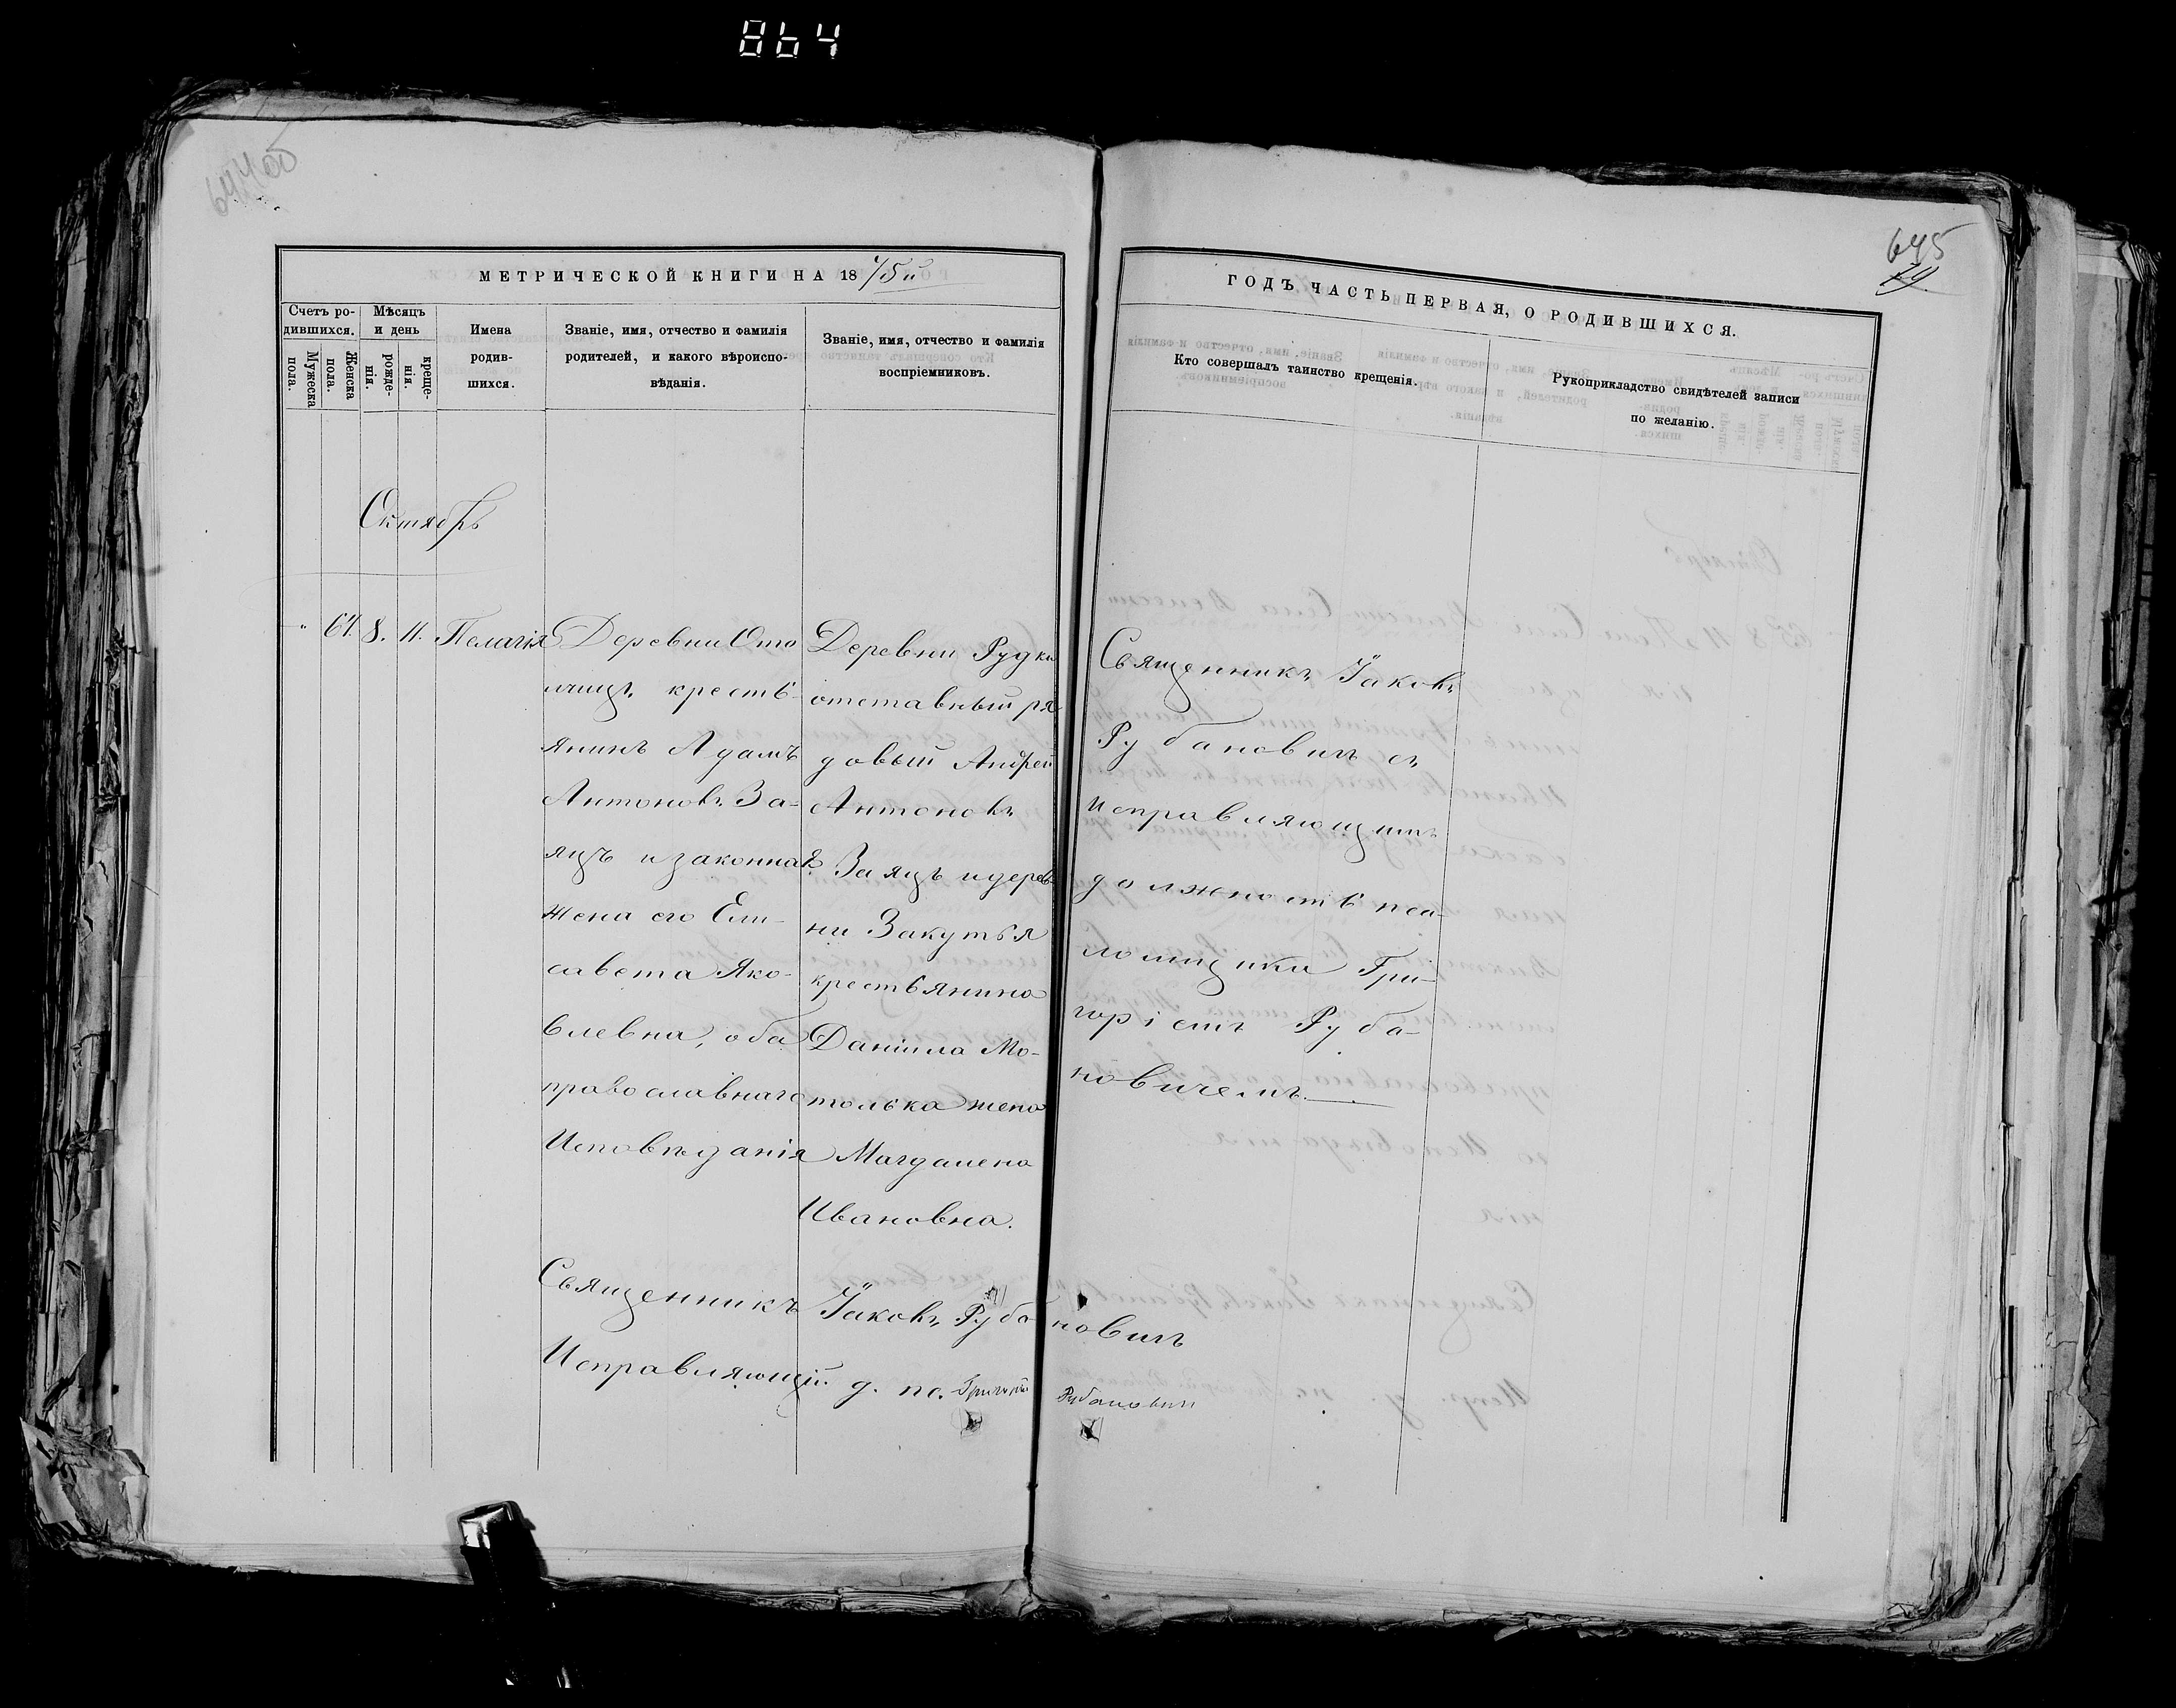 864
644об
645
79
МЕТРИЧЕСКОЙ КНИГИ НА 1875й
ГОДЪ, ЧАСТЬ ПЕРВАЯ, О РОДИВШИХСЯ.
Счетъ ро-
дившихся.
Мужеска
пола.
Женска
пола.
Мѣсяцъ
и день
рожде-
нія.
креще-
нія.
Имена
родив-
шихся.
Званіе, имя, отчество и фамилія
родителей, и какого вѣроиспо-
вѣданія.
Званіе, имя, отчество и фамилія
воспріемниковъ.
Кто совершалъ таинство крещенія.
Рукоприкладство свидѣтелей записи
по желанію.
Октябрь
" 67. 8. 11. Пелагія
Деревни Ото
лчицъ кресть-
янинъ Адамъ
Антоновъ За-
яцъ и законная
жена его Ели-
савета Яко-
влевна, оба
православнаго
Исповѣданія
Деревни Рудки
отставный ря
довый Андрей
Антоновъ
Заяцъ и дерев
ни Закутья
крестьянина
Даніила Мо-
толька жена
Магдалена
Ивановна.
Священникъ Іаковъ
Рубановичъ съ
исправляющимъ
должность пса-
ломщика Гри-
горіемъ Руба-
новичемъ.
Священникъ Іаковъ Рубановичъ
Исправляющій д. пс. Григорій Рубановичъ